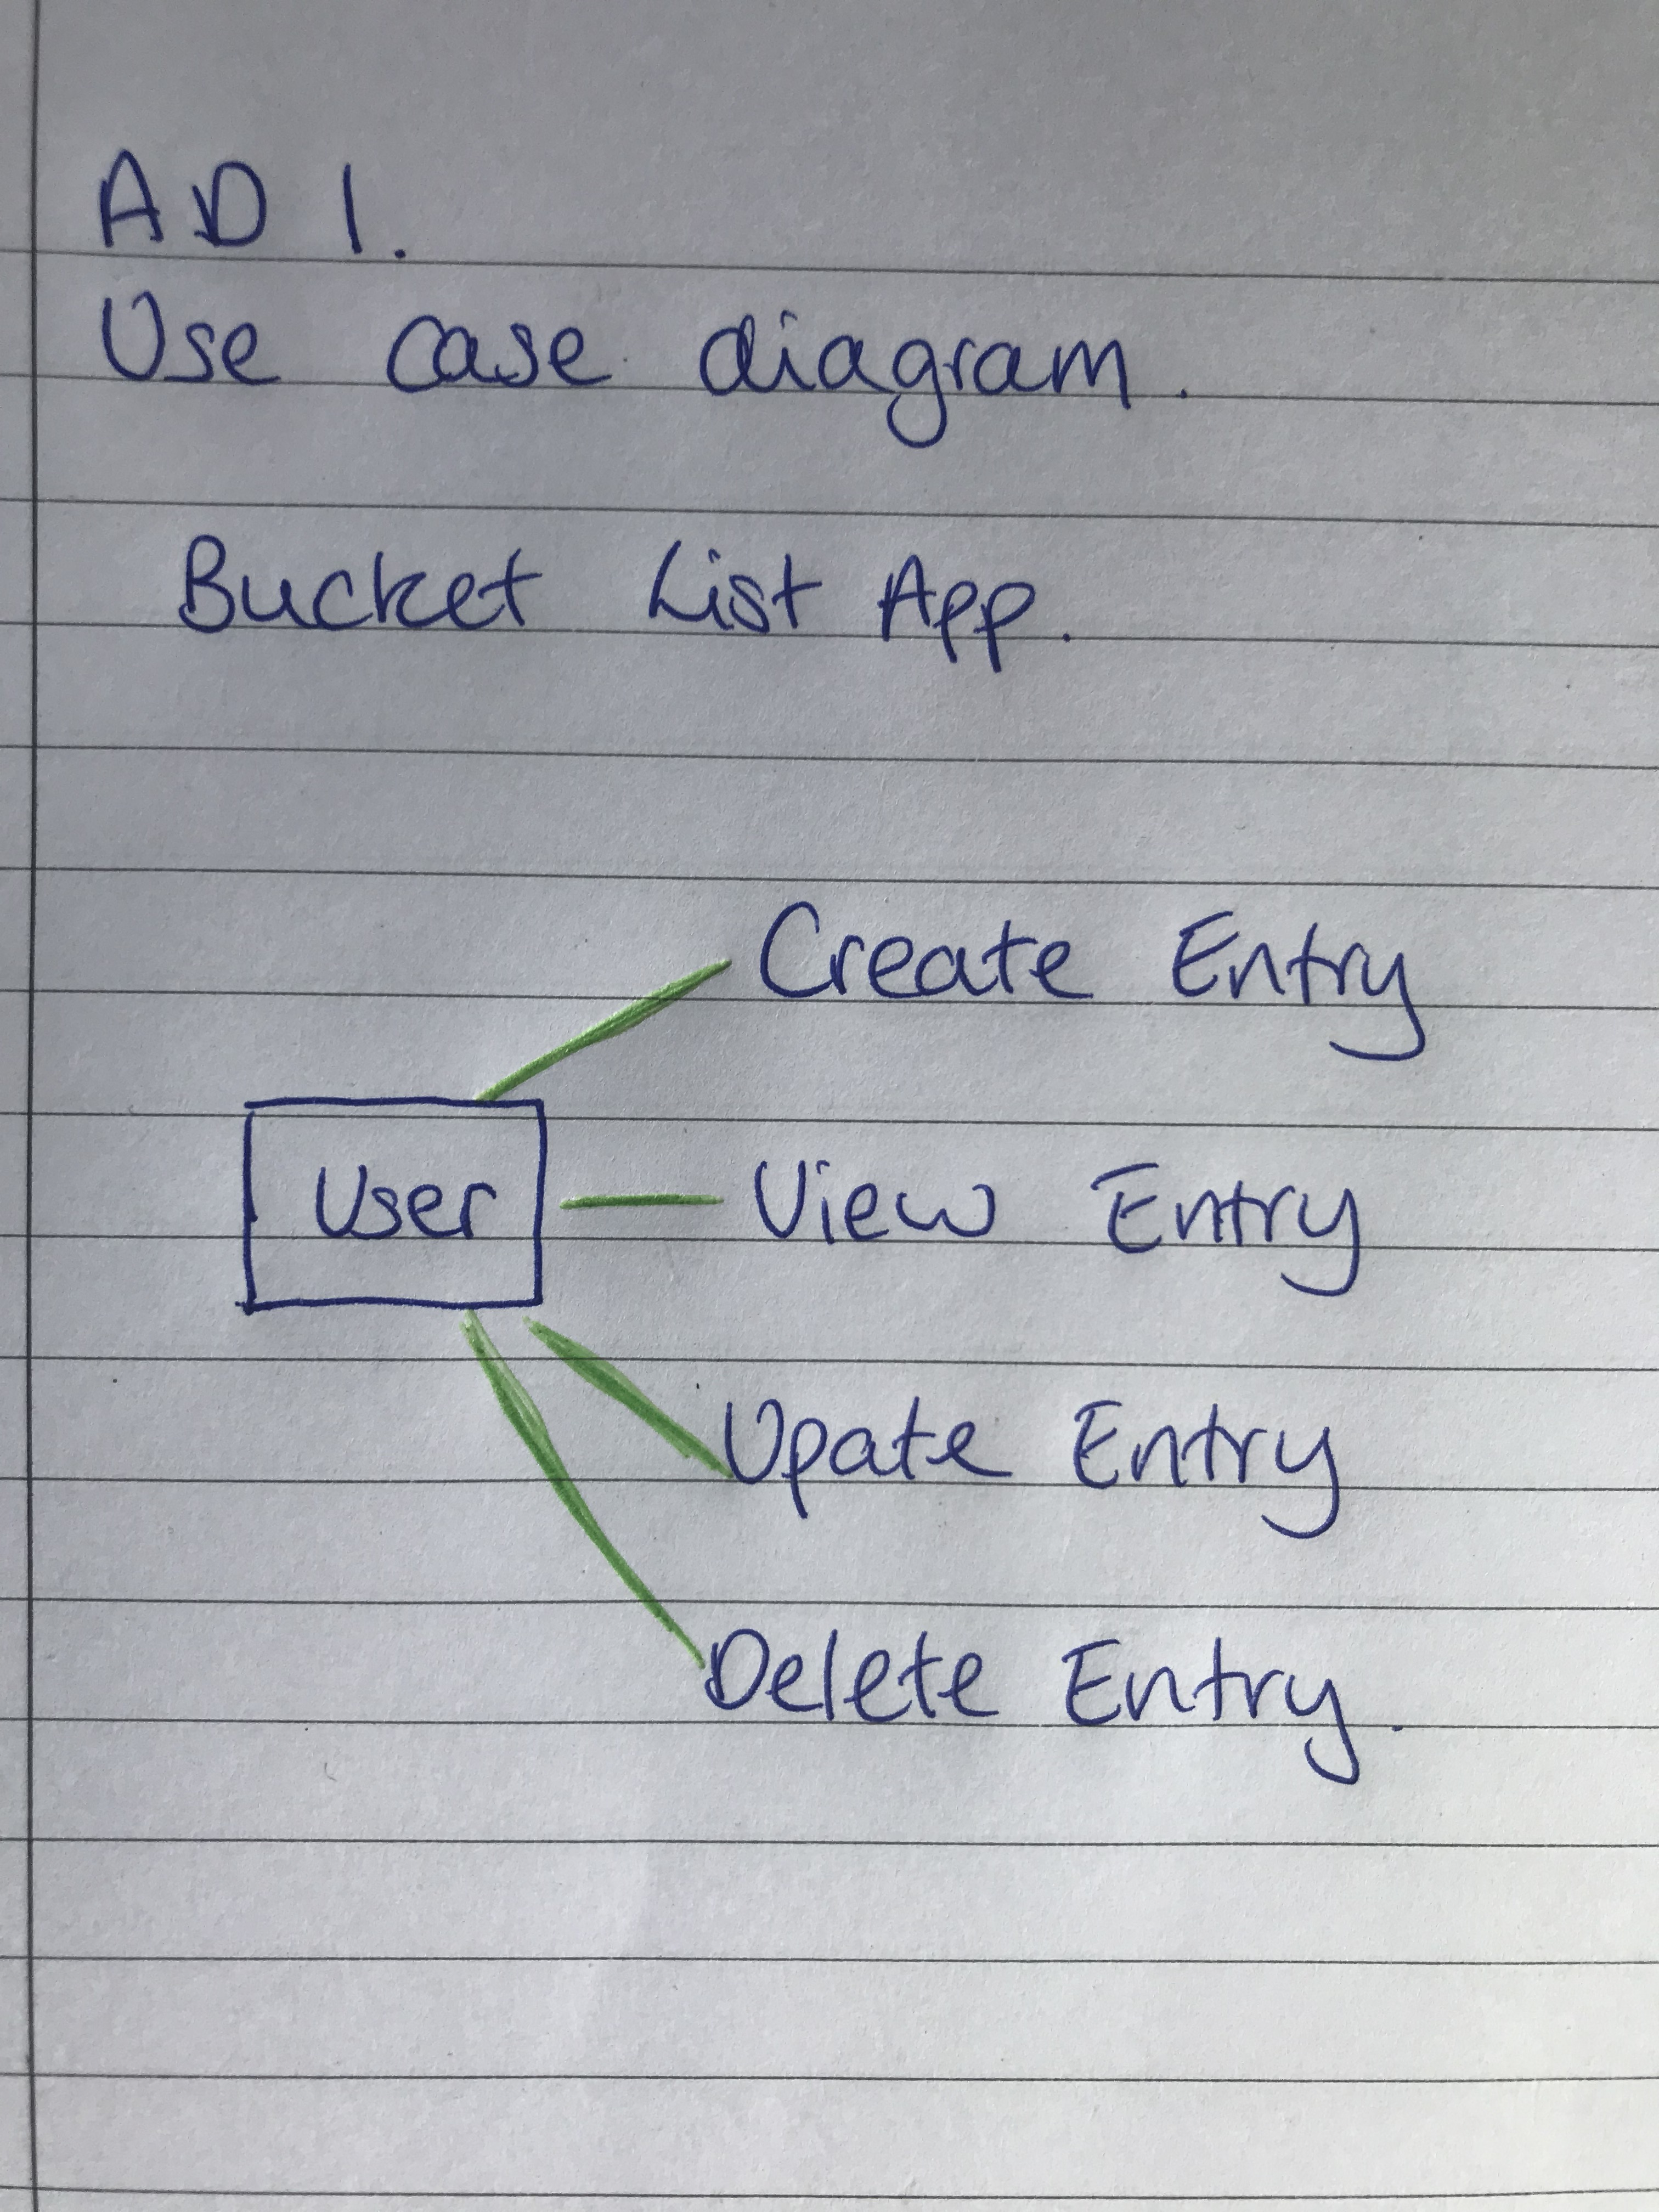 A D 1.
Use case diagram.
Bucket List App.
Create Entry
User
View Entry
Upate Entry
Delete Entry.